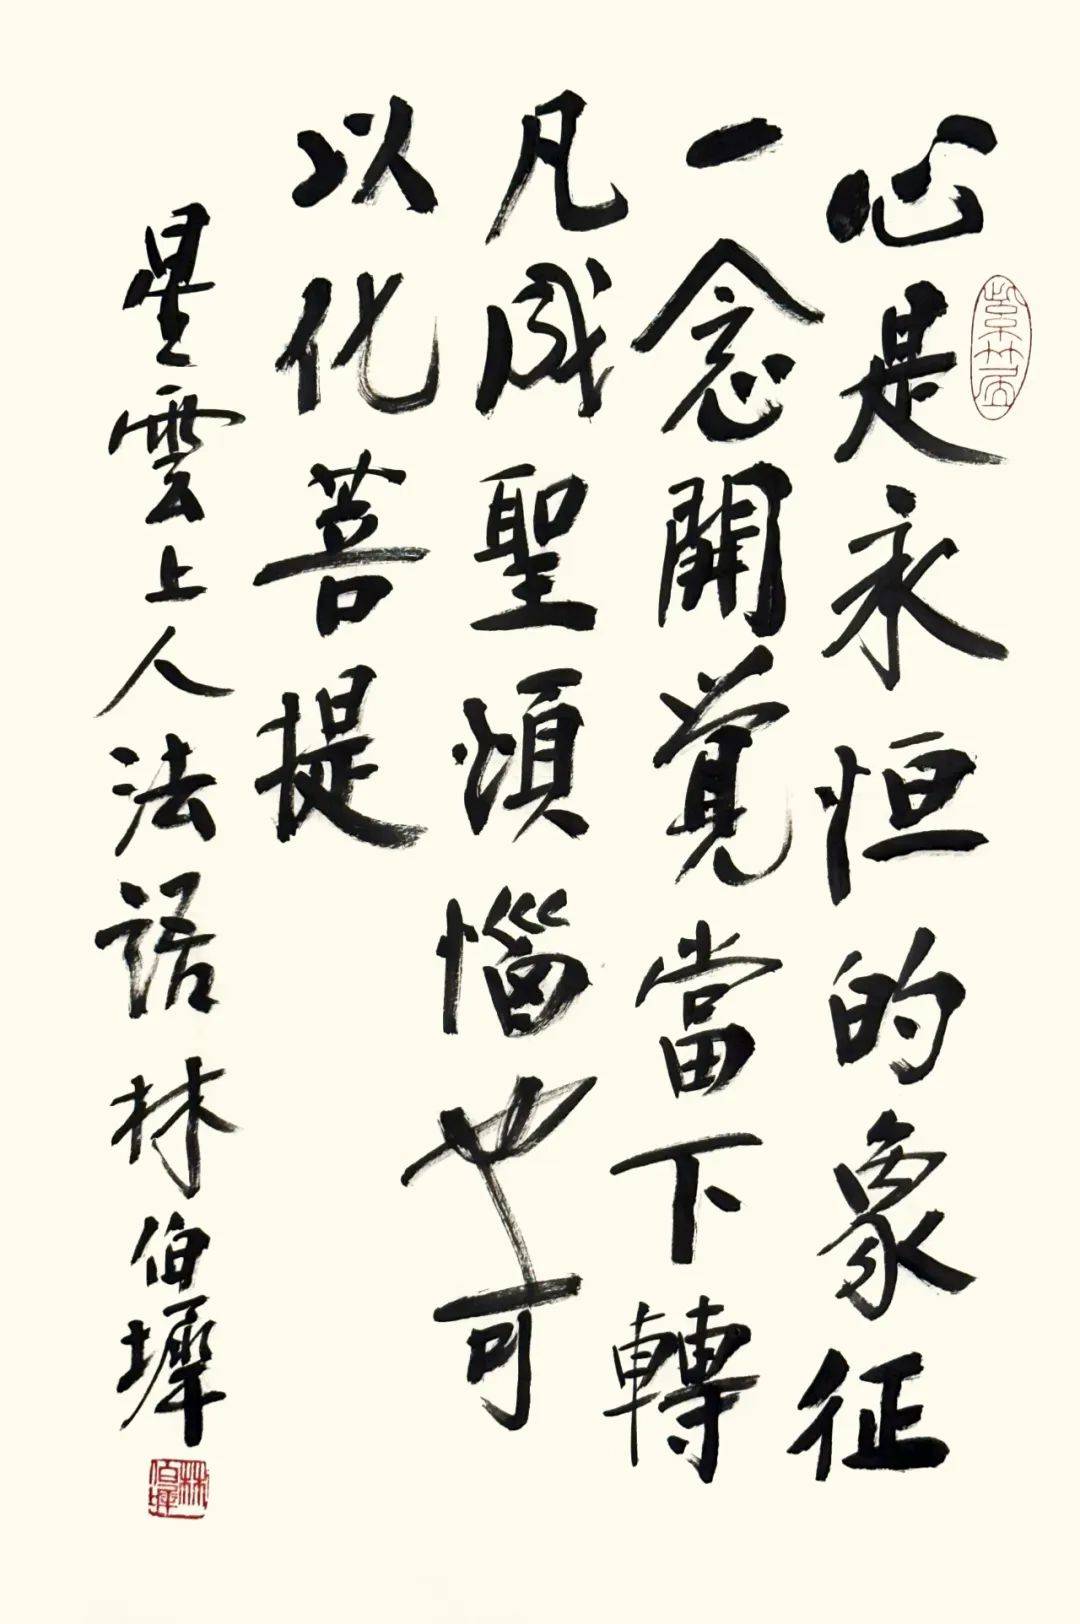 心是永恒的象征
一念開覺當下轉
凡成聖煩惱也可
以化菩提
星雲上人法語林伯墀
林伯墀